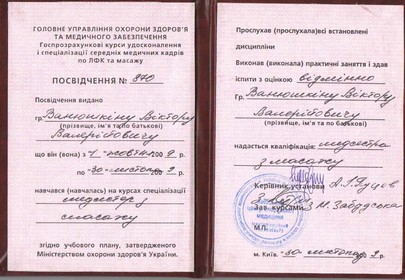 ГОЛОВНЕ УПРАВЛІННЯ ОХОРОНИ ЗДОРОВ'Я
ТА МЕДИЧНОГО ЗАБЕЗПЕЧЕННЯ
Госпрозрахункові курси удосконалення
і спеціалізації середніх медичних кадрів
по ЛФК та масажу
ПОСВІДЧЕННЯ № 970
Посвідчення видано
гр. Ванюшкіну Віктору
(прізвище, ім'я та по батькові)
Валерійовичу
що він (вона) з «1» жовтня 200 г.
по «30» листопада
навчався (навчалась) на курсах спеціалізації
медсестер з
масажу
згідно учбового плану, затвердженого
Міністерством охорони здоров'я України.
Прослухав (прослухала)всі встановлені
дисципліни
Виконав (виконала) практичні заняття і здав
іспити з оцінкою відмінно
гр. Ванюшкіну Віктору
Валерійовичу
(прізвище, ім'я та по батькові)
надається кваліфікація: медсестра
з масажу
Керівник установи
Зав. курсами З.М. Забудська
М.П.
м. Київ. 30 листопада